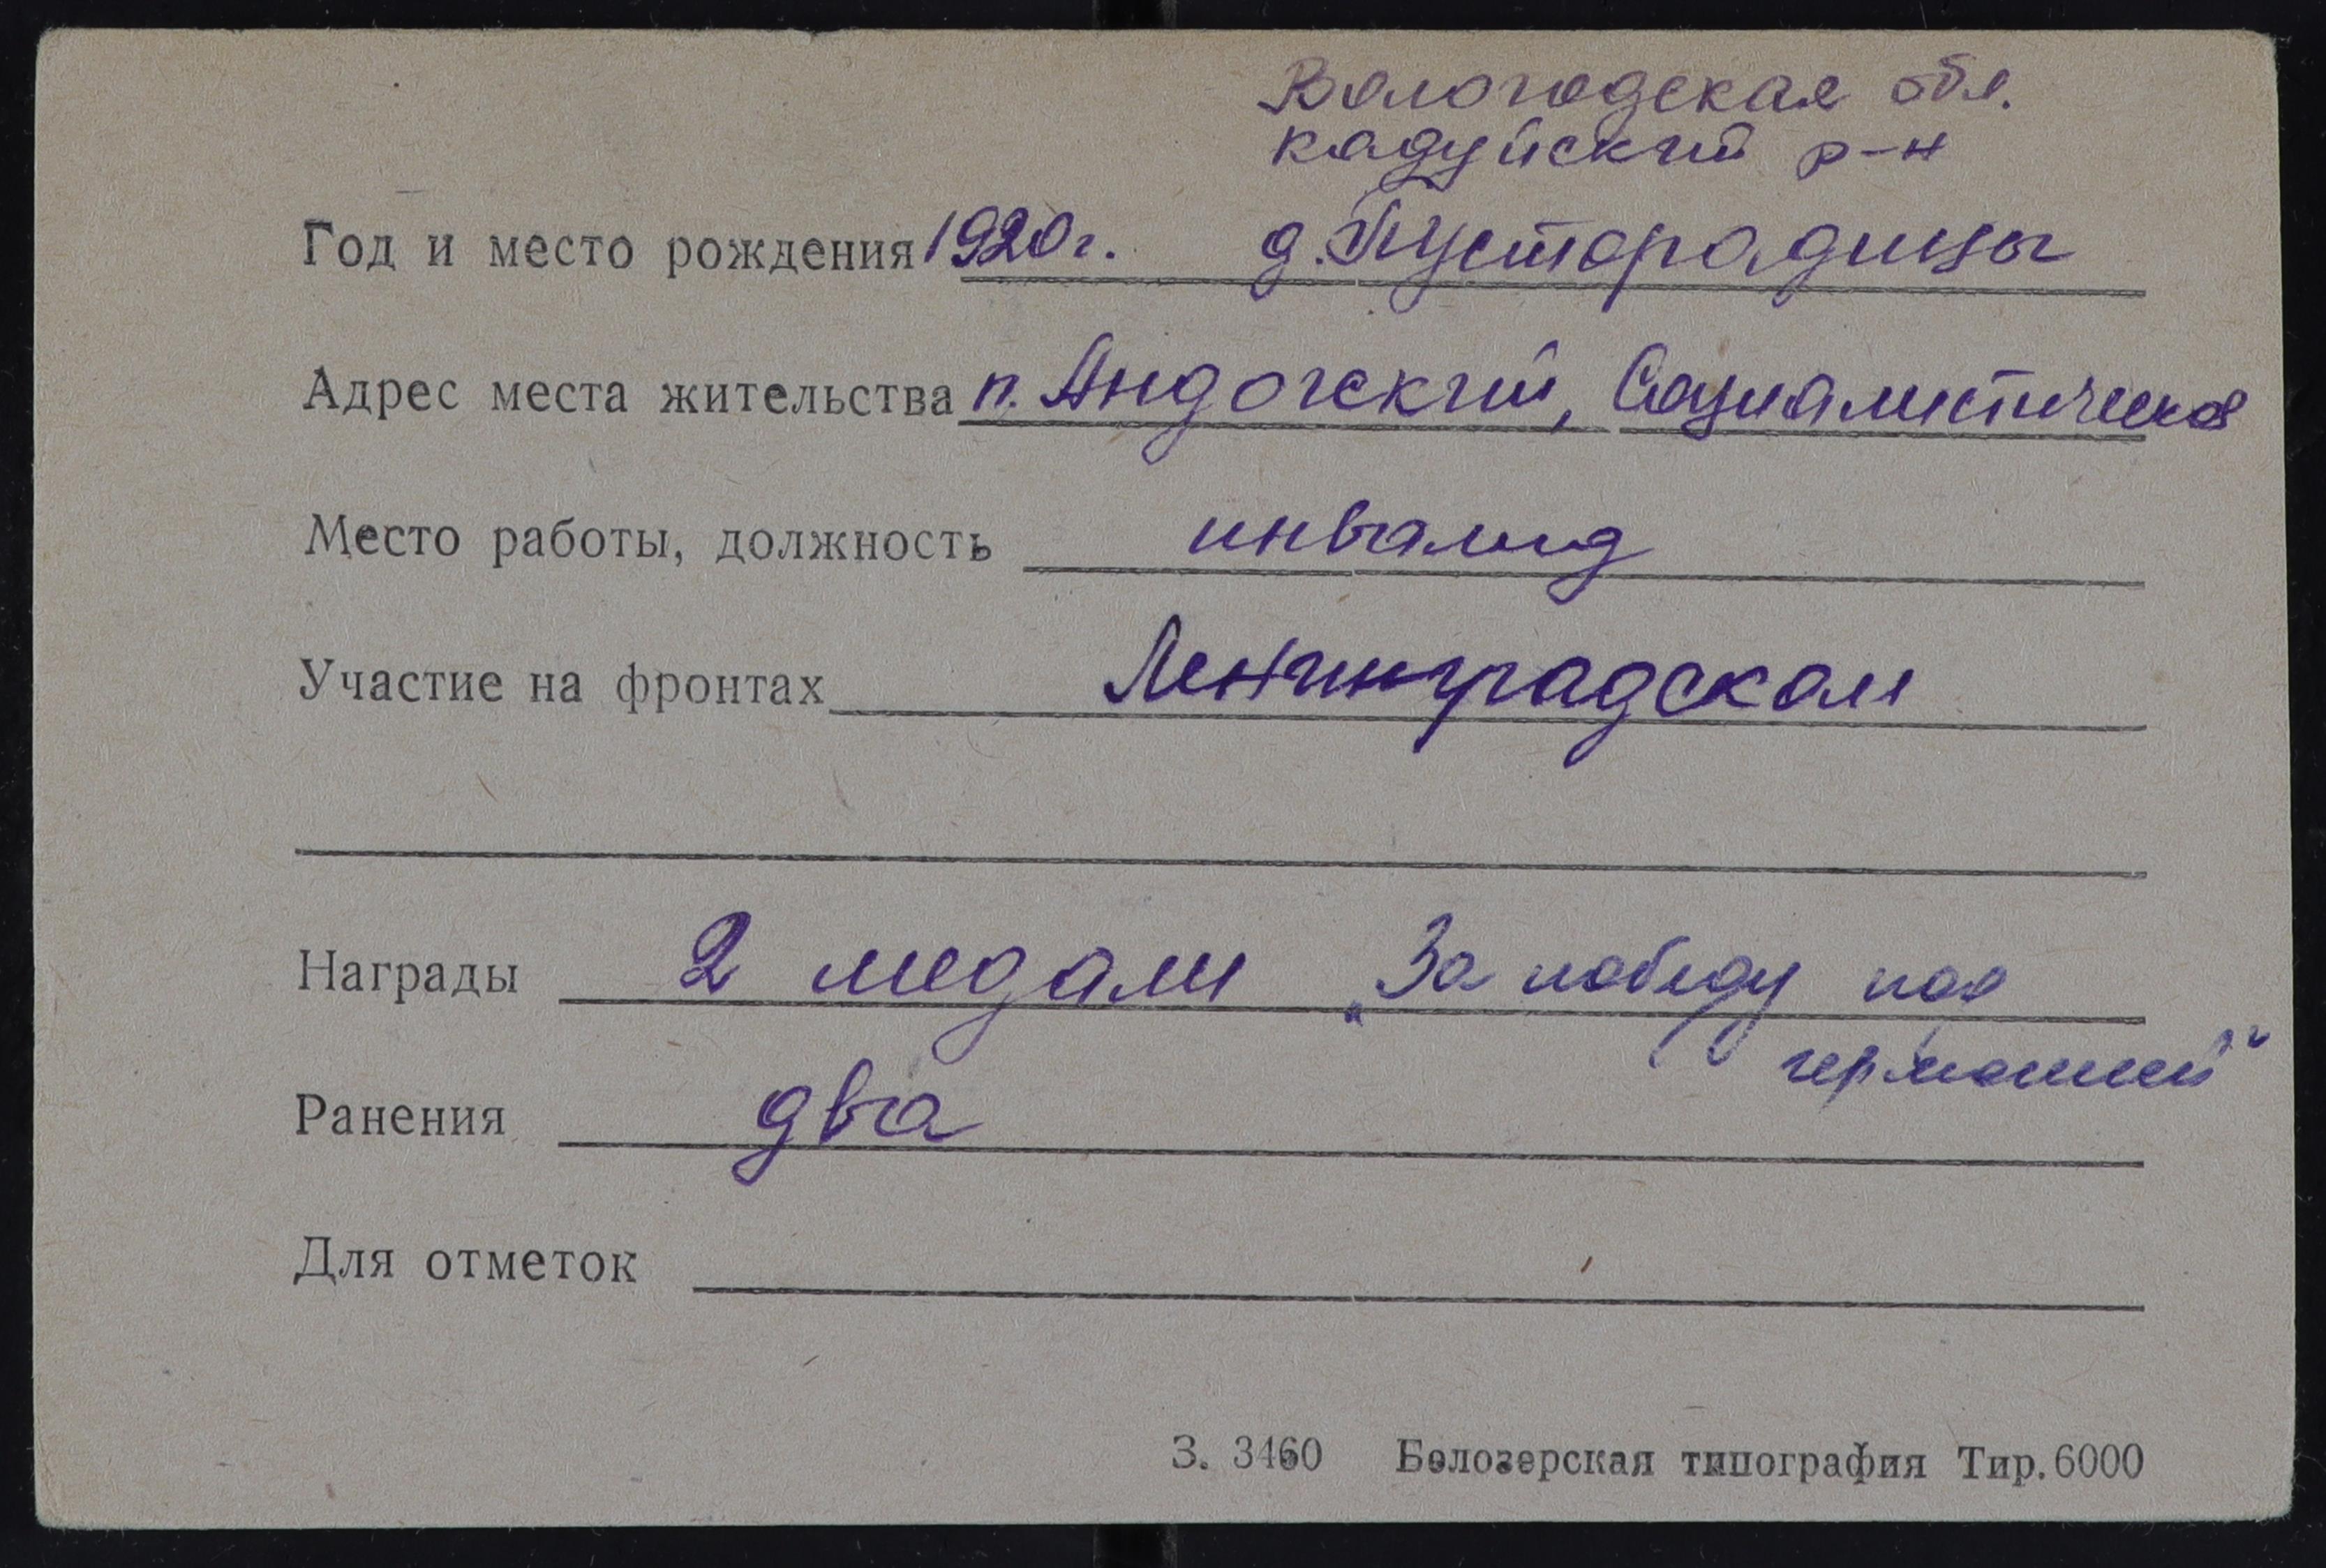 Вологодская обл.
кадуйский р-н
Год и место рождения 1920г. д. Пусторадицы
Адрес места жительства п. Андогский, Социалистическая
Место работы, должность инвалид
Участие на фронтах Ленинградском
Награды 2 медали „За победу над
германией"
Ранения два
Для отметок
З. 3460 Белозерская типография Тир. 6000